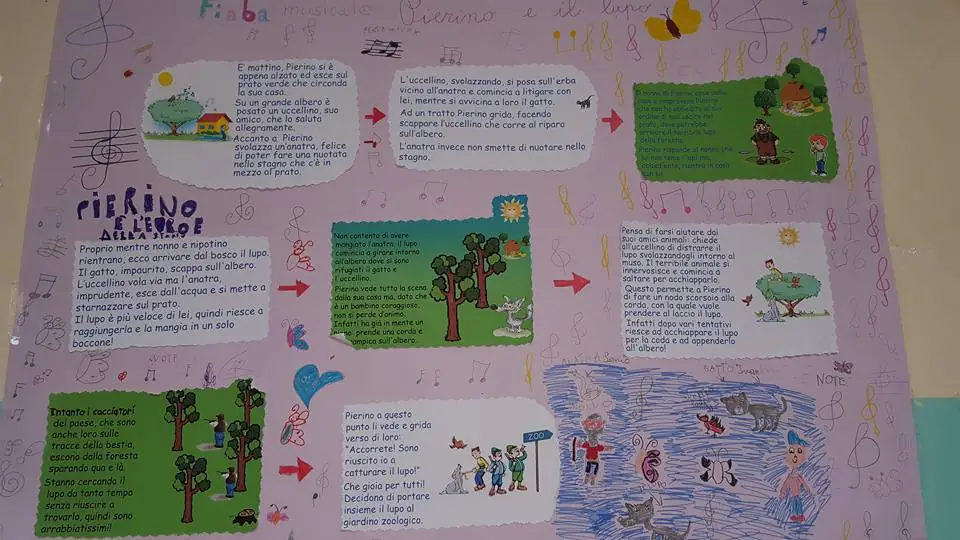 Fiaba musicale Pierino e il lupo
E' mattino, Pierino si è
appena alzato ed esce sul
prato verde che circonda
la sua casa.
Su un grande albero è
posato un uccellino, suo
amico, che lo saluta
allegramente.
Accanto a Pierino
svolazza un'anatra, felice
di poter fare una nuotata
nello stagno che c'è in
mezzo al prato.
L'uccellino, svolazzando, si posa sull'erba
vicino all'anatra e comincia a litigare con
lei, mentre si avvicina a loro il gatto.
Ad un tratto Pierino grida, facendo
scappare l'uccellino che corre al riparo
sull'albero.
L'anatra invece non smette di nuotare nello
stagno.
Il nonno di Pierino esce dalla
casa e rimprovera Pierino
che non ha
prato, dove potrebbe
arrivare il terribile lupo
della foresta.
Pierino risponde al nonno che
lui non teme i lupi ma,
obbediente, rientra in casa
PIERINO
E
DELLA
Proprio mentre nonno e nipotino
rientrano, ecco arrivare dal bosco il lupo.
Il gatto, impaurito, scappa sull'albero.
L'uccellino vola via ma l'anatra,
imprudente, esce dall'acqua e si mette a
starnazzare sul prato.
Il lupo è più veloce di lei, quindi riesce a
raggiungerla e la mangia in un solo
boccone!
Non contento di avere
mangiato l'anatra, il lupo
comincia a girare intorno
all'albero dove si sono
rifugiati il gatto e
l'uccellino.
Pierino vede tutta la scena
dalla sua casa ma, dato che
è un bambino coraggioso,
non si perde d'animo.
Infatti ha già in mente un
prende una corda e
sull'albero.
Pensa di farsi aiutare dai
suoi amici animali: chiede
all'uccellino di distrarre il
lupo svolazzandogli intorno al
muso. Il terribile animale si
innervosisce e comincia a
saltare per acchiapparlo.
Questo permette a Pierino
di fare un nodo scorsoio alla
corda, con la quale vuole
prendere al laccio il lupo.
Infatti dopo vari tentativi
riesce ad acchiappare il lupo
per la coda e ad appenderlo
all'albero!
NOTE
GATTO
NOTE
Intanto i cacciatori
del paese, che sono
anche loro sulle
tracce della bestia,
escono dalla foresta
sparando qua e là.
Stanno cercando il
lupo da tanto tempo
senza riuscire a
trovarlo, quindi sono
arrabbiatissimi!
Pierino a questo
punto li vede e grida
verso di loro:
"Accorrete! Sono
riuscito io a
catturare il lupo!"
Che gioia per tutti!
Decidono di portare
insieme il lupo al
giardino zoologico.
ZOO